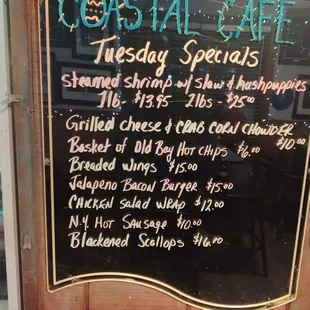 COASTAL CAFE
Tuesday Specials
Steamed shrimp w/ slaw & hushpuppies
1lb - $13.95 2lbs - $25.00
Grilled cheese & CRAB CORN CHOWDER
$10.00
Basket of Old Bay HOT CHIPS $6.00
Breaded wings $15.00
Jalapeno Bacon Burger $15.00
CHICKEN SALAD WRAP $12.00
N.Y. HOT SAUSAGE $10.00
Blackened Scallops $16.00